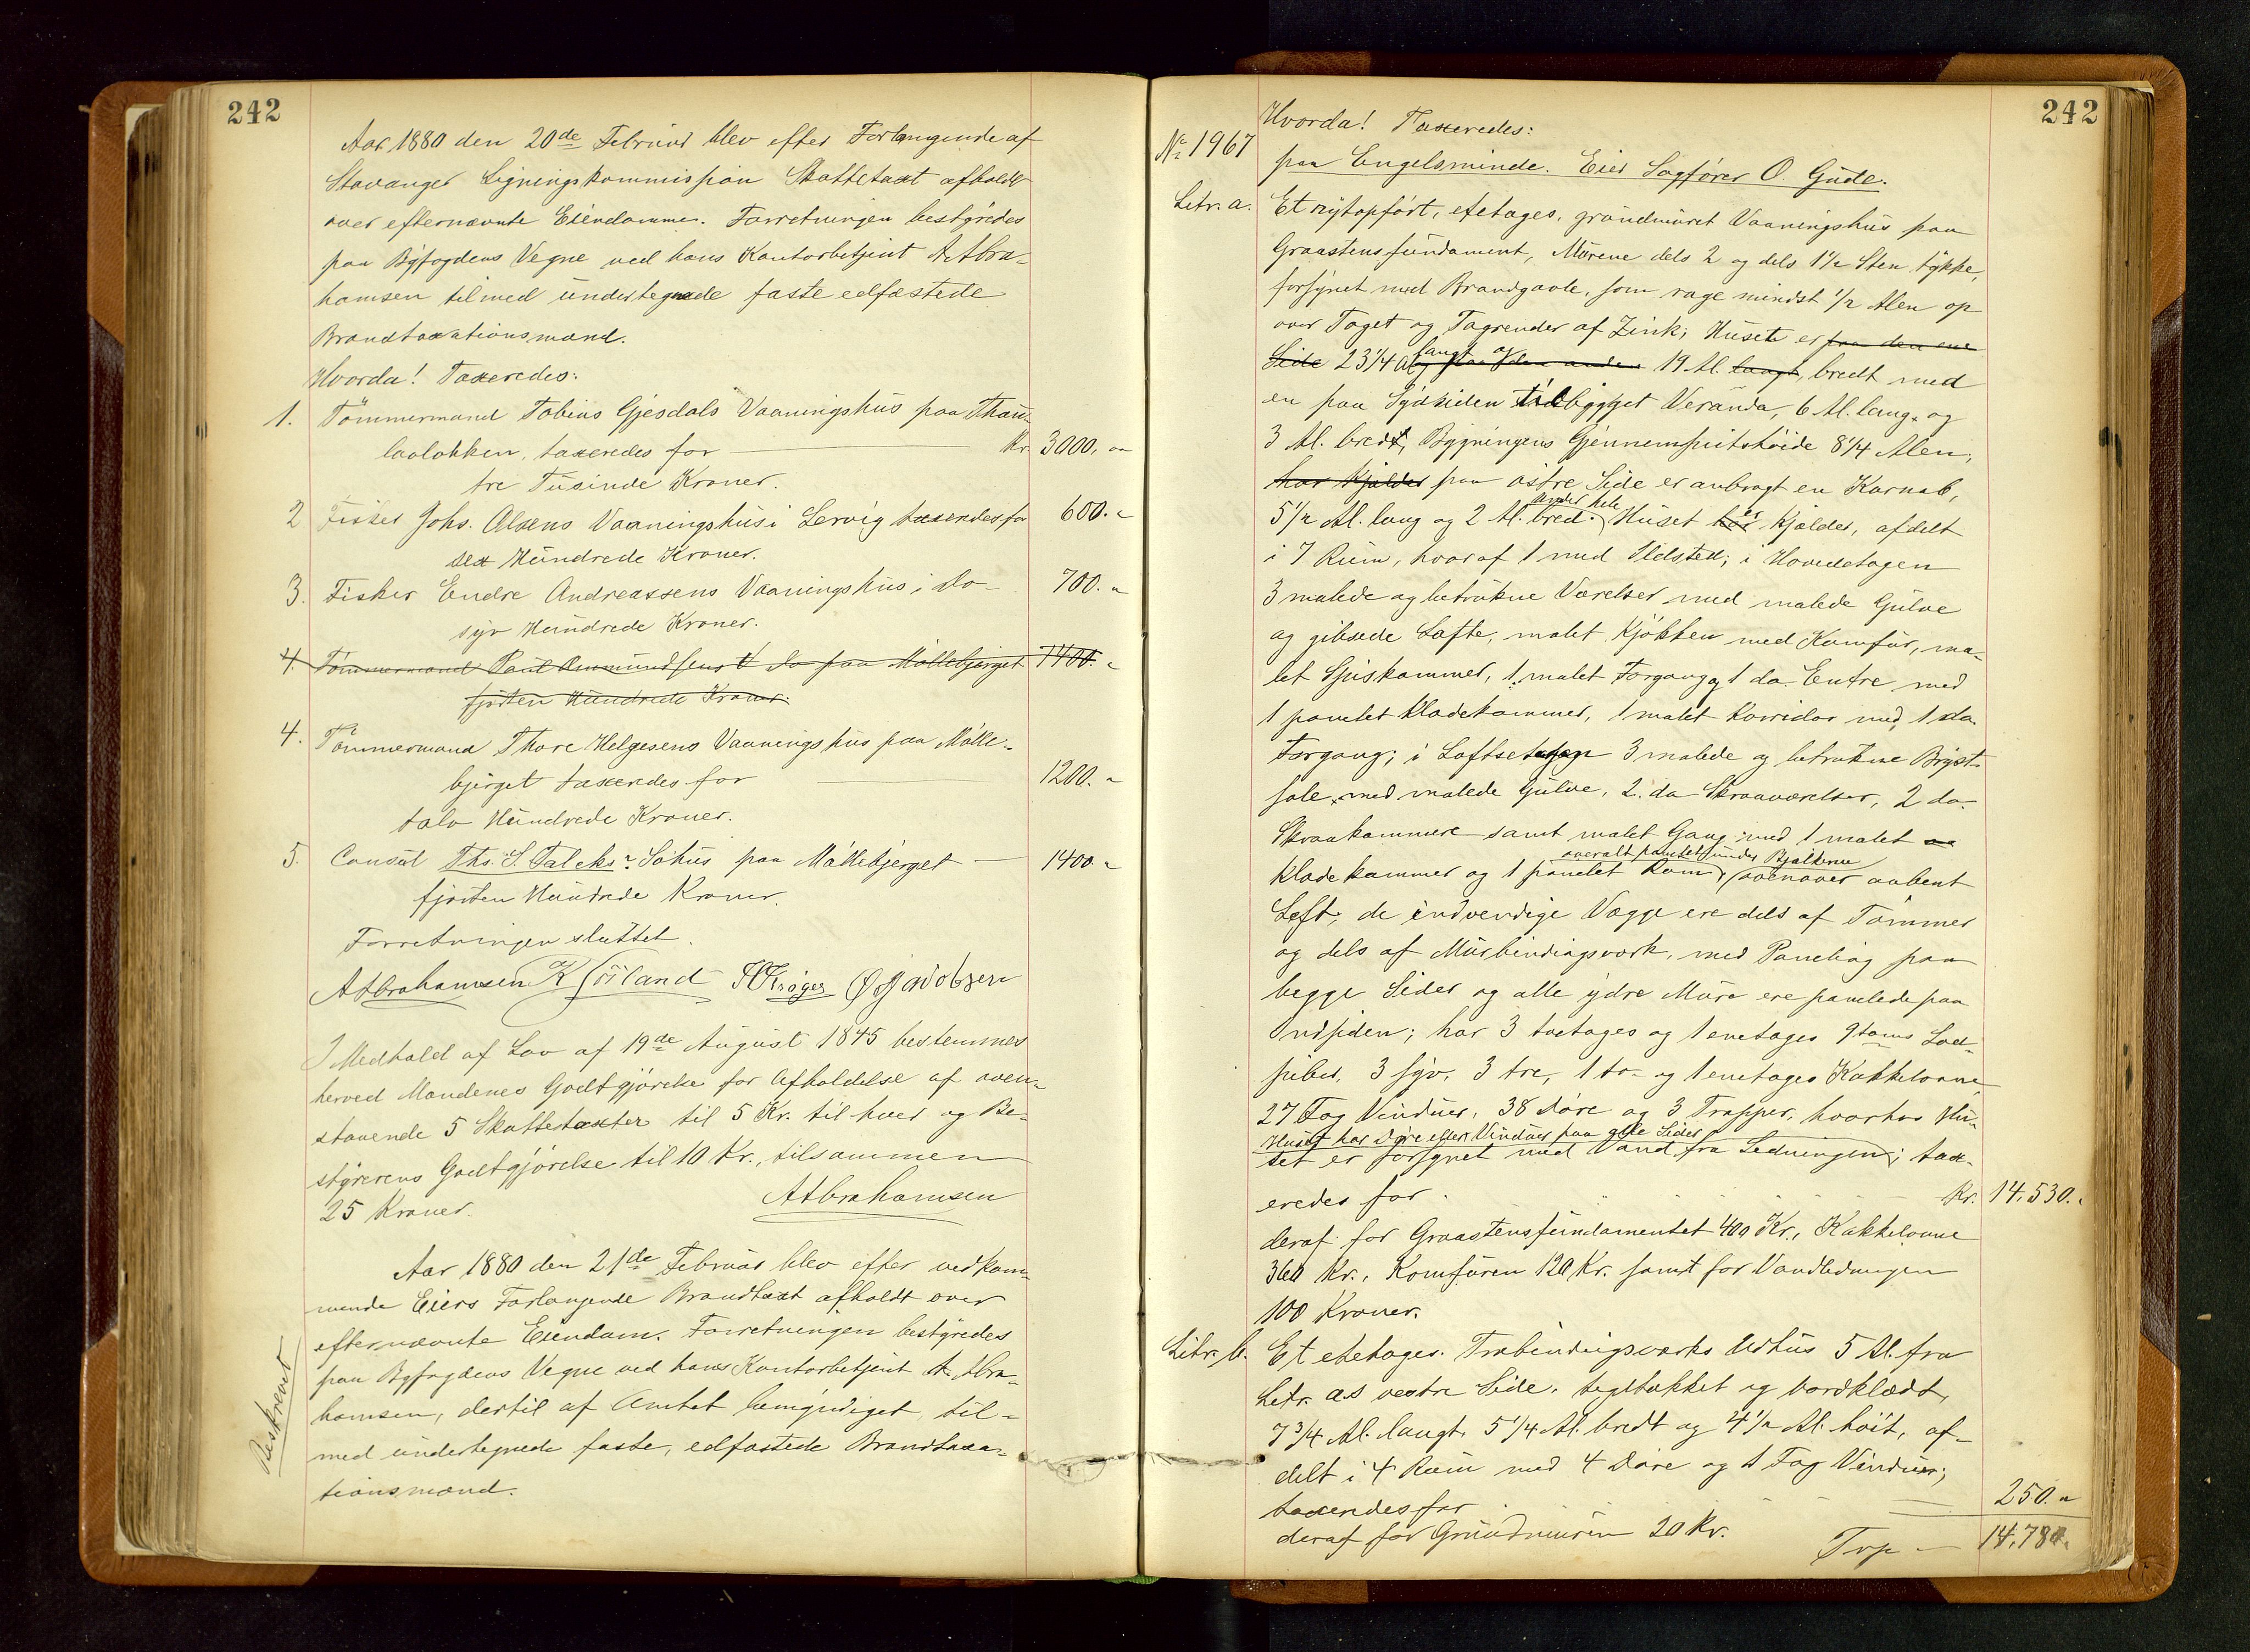 242
Aar 1880 den 20de Februar blev efter Forlangende af
Stavanger Ligningskommission Skattetaxt afholdt
over efternævnte Eiendomme. Forretningen bestyredes
paa Byfogdens Vegne ved hans Kontorbetjent A. Abra-
hamsen tilmed undertegnede faste edfæstede
Brandtaxationsmænd.
Hvorda! Taxeredes:
1. Tømmermand Tobias Gjesdals Vaaningshus paa Thau-
laaløkken, taxeredes for — Kr. 3000. "
tre Tusinde Kroner.
2 Fisker Johs. Olsens Vaaningshus i Lervig taxeredes for 600. "
sex Hundrede Kroner.
3. Fisker Endre Andreassens Vaaningshus i do — 700. "
syv Hundrede Kroner.
4. Tømmermand Paul Ommundsens V do paa Møllebjerget 1400. "
fjorten Hundrede Kroner.
4. Tømmermand Thore Helgesens Vaaningshus paa Mølle-
bjerget taxeredes for — 1200. "
tolv Hundrede Kroner.
5. Consul Ths. S. Falcks Søhus paa Møllebjerget — 1400. "
fjorten Hundrede Kroner.
Forretningen sluttet.
A Abrahamsen K Joiland Krøger O Jacobsen
I Medhold af Lov af 19de August 1845 bestemmes
herved Mændenes Godtgjørelse for Afholdelse af oven-
staaende 5 Skattetaxter til 5 Kr. til hver og Be-
styrerens Godtgjørelse til 10 Kr., tilsammen
25 Kroner. A Abrahamsen
Aar 1880 den 21de Februar blev efter vedkom-
mende Eiers Forlangende Brandtaxt afholdt over
efternævnte Eiendom. Forretningen bestyredes
paa Byfogdens Vegne ved hans Kontorbetjent A. Abra-
hamsen, dertil af Amtet bemyndiget, til-
med undertegnede faste, edfæstede Brandtaxa-
tionsmænd.
Beskrevet
242
Hvorda! Taxeredes:
No 1967 paa Engelsminde. Eier Sagfører O. Gude.
Litr. a. Et nytopført, etetages, grundmuret Vaaningshus paa
Graastensfundament, Murene dels 2 og dels 1 1/2 Sten tykke,
forsynet med Brandgavle, som rage mindst 1/2 Alen op
over Taget og Tagrender af Zink; Huset er paa den ene
Side 23 1/4 Al langt og og paa den anden 19 Al. langt, bredt med
en paa Sydsiden tilbygget Veranda, 6 Al. lang og
3 Al. bred, Bygningens Gjennemsnitshøide 8 1/4 Alen,
har Kjelder paa østre Side er anbragt en Karnab,
5 1/2 Al. lang og 2 Al. bred. under hele Huset har er Kjelder, afdelt
i 7 Rum, hvoraf 1 med Ildsted; i Hovedetagen
3 malede og betrukne Værelser med malede Gulve
og gibsede Lofte, malet Kjøkken med Komfur, ma-
let Spiskammer, 1 malet Forgang og 1 do. Entre med
1 panelet Klædekammer, 1 malet Korridor med 1 do.
Forgang; i Loftsetagen 3 malede og betrukne Bryst-
sale med malede Gulve, 2 do Skraaværelser, 2 do.
Skraakammere samt malet Gang med 1 malet
Klædekammer og 1 panelet Rum, overalt panelet under Bjælkerne ovenover aabent
Loft; de indvendige Vægge ere dels af Tømmer
og dels af Murbindingsværk, med Paneling paa
begge Sider og alle ydre Mure ere panelede paa
Indsiden; har 3 toetages og 1 enetages 9toms Lod-
piber, 3 syv, 3 tre, 1 to- og 1 enetages Kakkelovne,
27 Fag Vinduer, 38 Døre og 3 Trapper, hvorhos Hu-
Huset har Døre eller Vinduer paa alle Sider
set er forsynet med Vand fra Ledningen; tax-
eredes for Kr. 14,530. "
deraf for Graastensfundamentet 400 Kr., Kakkelovne
360 Kr., Komfuren 120 Kr. samt for Vandledningen
100 Kroner.
Litr. b. Et etetages Træbindingsværks Udhus 5 Al. fra
Litr. as vestre Side, tegltækket og bordklædt,
7 3/4 Al. langt, 5 1/4 Al. bredt og 4 1/2 Al. høit, af-
delt i 4 Rum med 4 Døre og 1 Fag Vinduer;
taxeredes for — 250. "
deraf for Grundmuren 20 Kr.
Trp — 14,780.